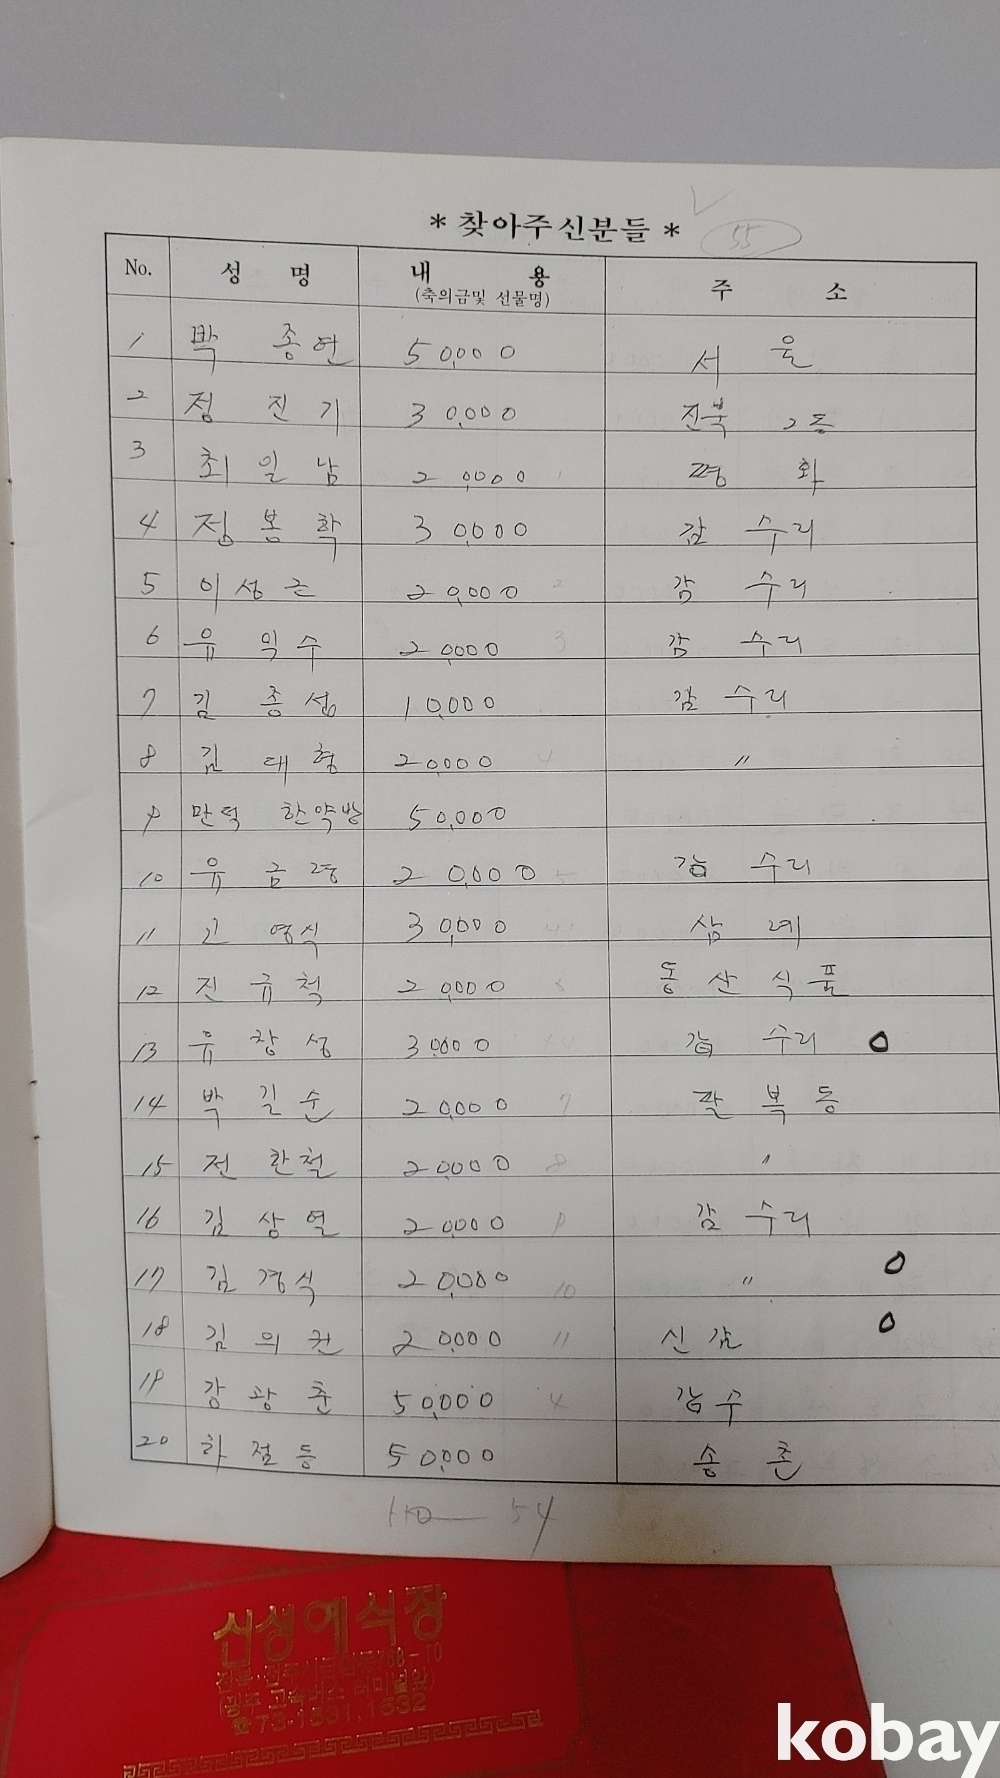 * 찾아주신분들 *
55
No. 성 명 내 용 주 소
(축의금및 선물명)
1 박 종연 50,000 서 울
2 정 진 기 30,000 진북 2동
3 최 일 남 20,000 평 화
4 정 봉 학 30,000 감 수리
5 이 성 근 20,000 2 감 수리
6 유 익 수 20,000 3 감 수리
7 김 종 섭 10,000 감 수리
8 김 대 형 20,000 4 〃
9 만덕 한약방 50,000
10 유 금 20,000 5 감 수리
11 고 영식 30,000 삼 례
12 진 규 척 20,000 6 동 산 식 품
13 유 창 성 30,000 감 수리 O
14 박 길 순 20,000 7 팔 복 동
15 전 환 철 20,000 8 〃
16 김 상 열 20,000 9 감 수리
17 김 경 식 20,000 10 〃 O
18 김 의 권 20,000 11 신 감 O
19 강 광 춘 50,000 4 감 수
20 하 점 동 50,000 송 촌
54
신생예식장
전북·전주시 768-10
(광주 고속버스 터미널앞)
☎ 73-1531, 1532
kobay